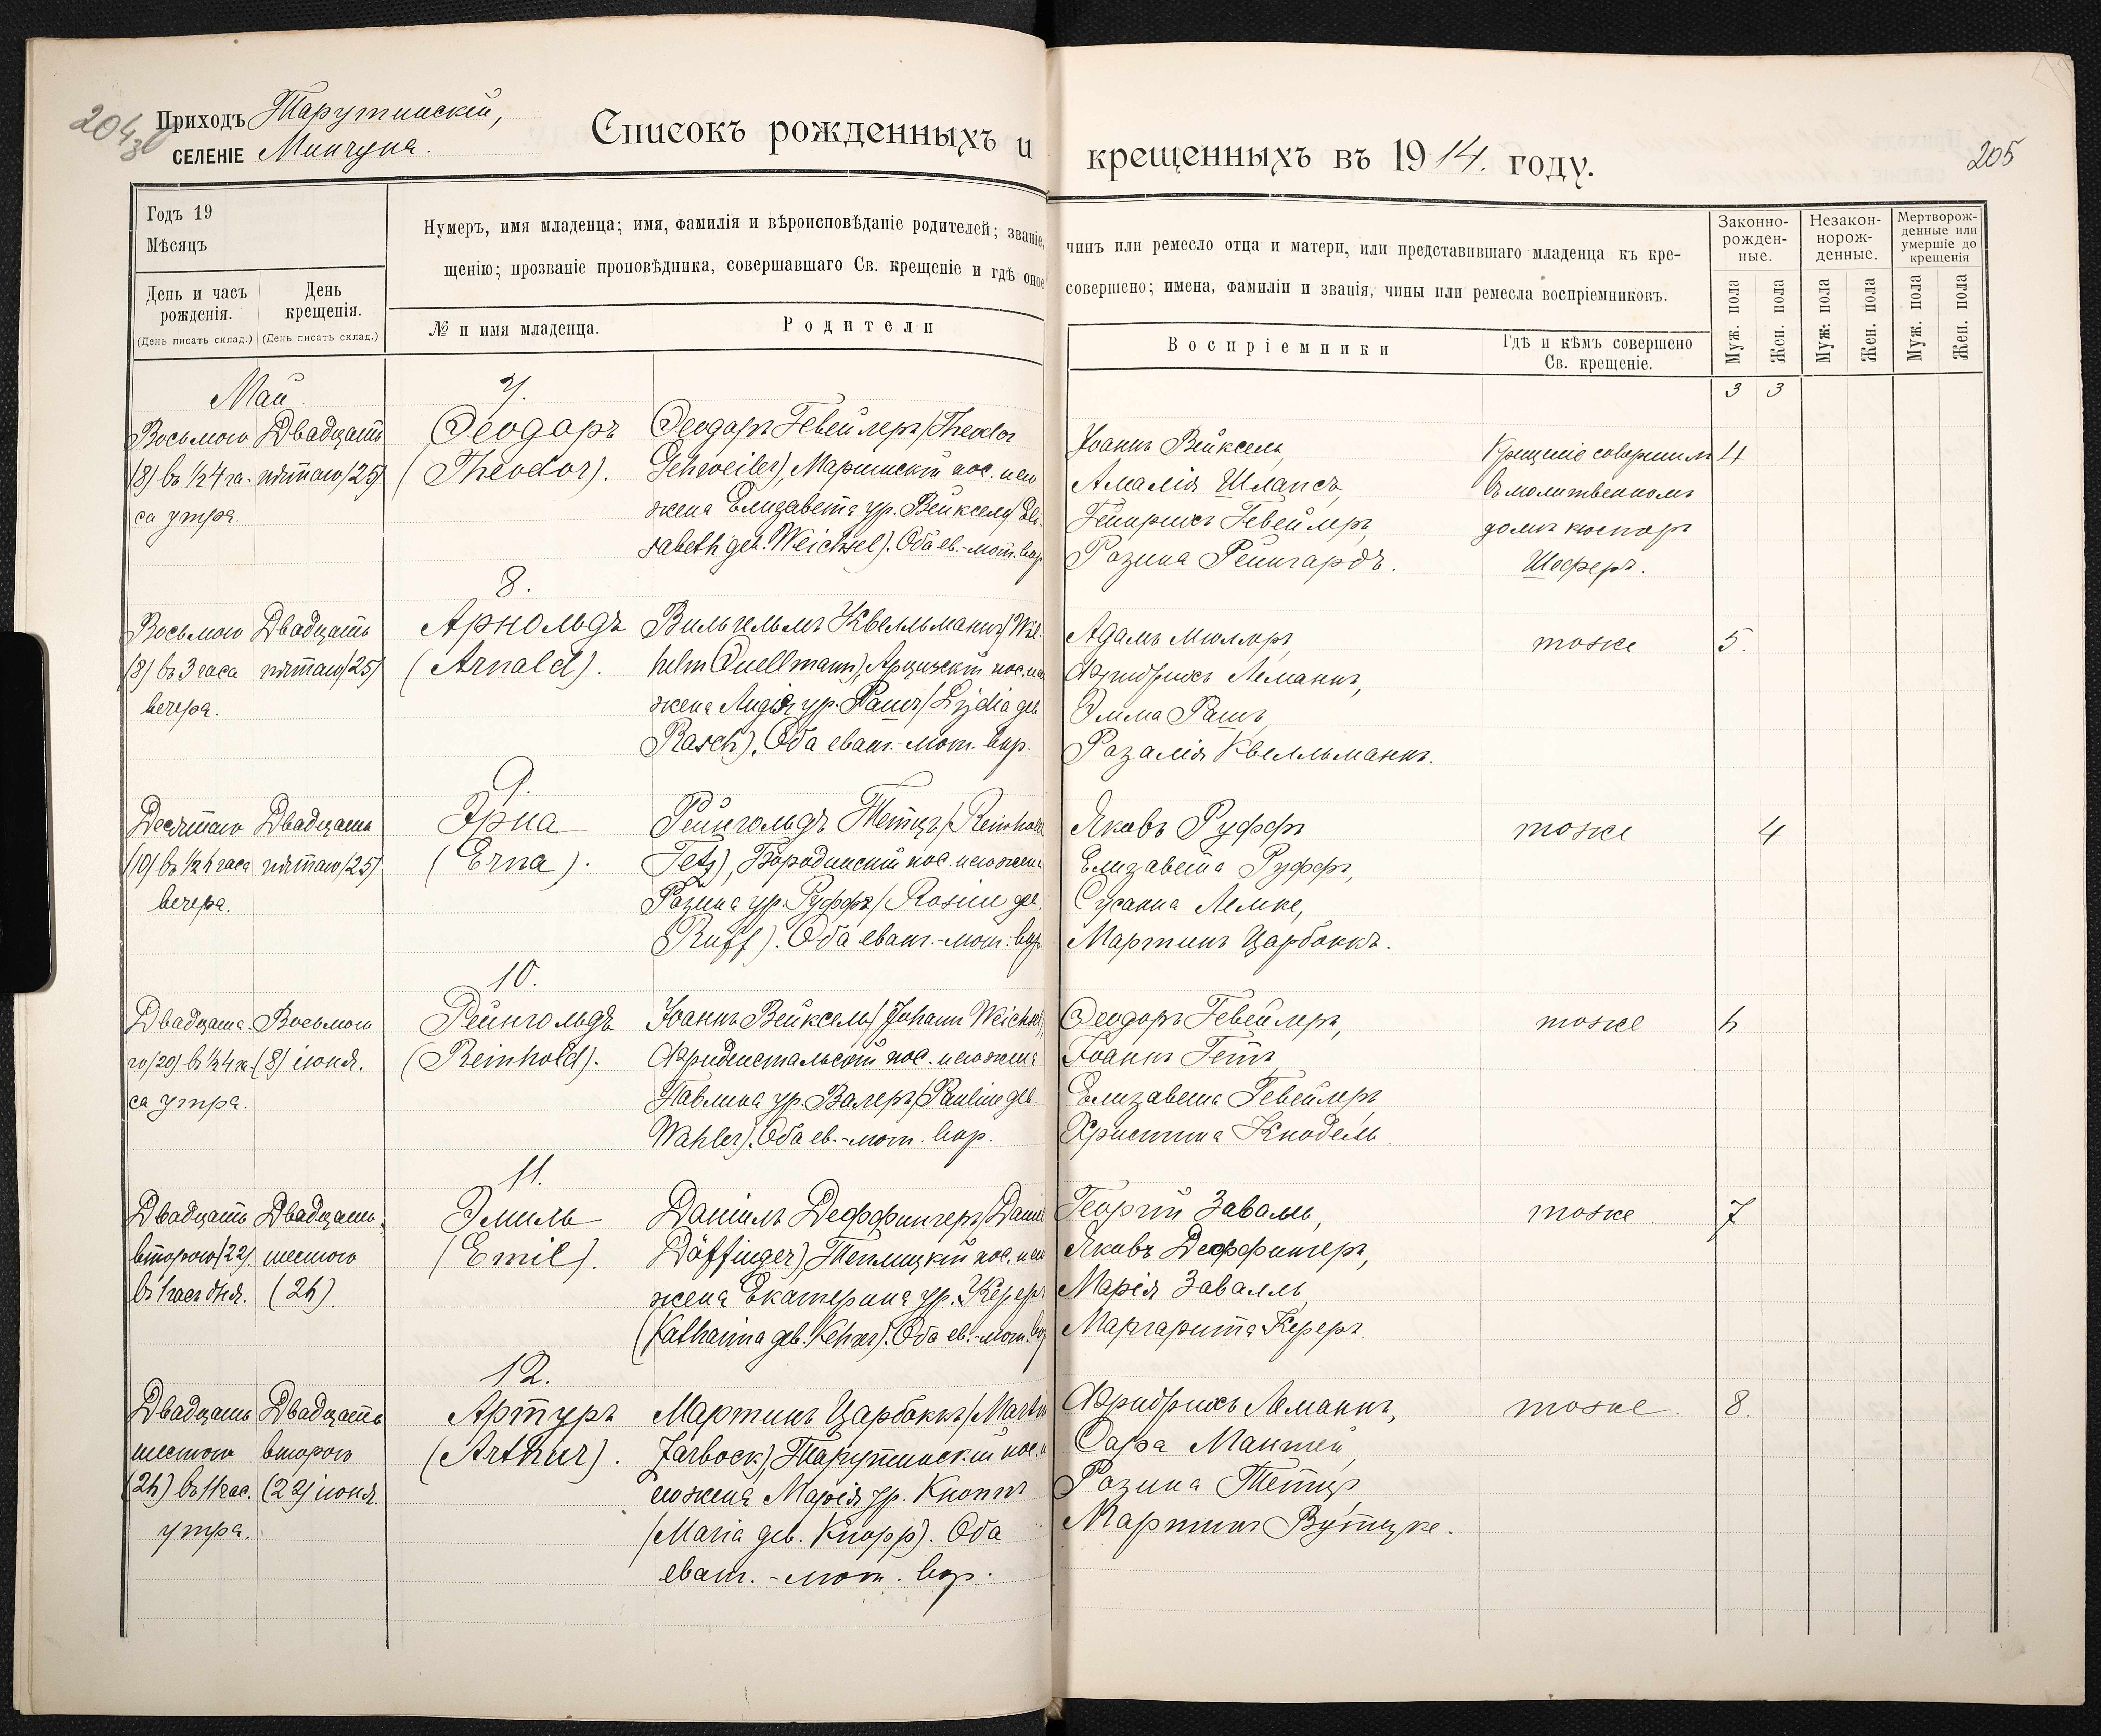 204
30
Приходъ Тарутинскій,
селеніе Минчуна.
Списокъ рожденныхъ и крещенныхъ въ 1914. году.
205
Годъ 19
Мѣсяцъ
День и часъ рожденія.
(День писать склад.)
День крещенія.
(День писать склад.)
Нумеръ, имя младенца; имя, фамилія и вѣроисповѣданіе родителей; званіе, чинъ или ремесло отца и матери, или представившаго младенца къ кре-
щенію; прозваніе проповѣдника, совершавшаго Св. крещеніе и гдѣ оное совершено; имена, фамиліи и званія, чины или ремесла воспріемниковъ.
№ и имя младенца.
Родители
Воспріемники
Гдѣ и кѣмъ совершено
Св. крещеніе.
Законно-
рожден-
ные.
Незакон-
норож-
денные.
Мертворож-
денные или
умершіе до
крещенія
Муж. пола
Жен. пола
Муж: пола
Жен. пола
Муж. пола
Жен. пола
3 3
Май
Восьмого
(8) въ ½ 4 ча-
са утра.
Двадцать
пятаго (25)
7.
Ѳеодоръ
(Theodor).
Ѳеодоръ Гевейлеръ (Theodor
Gehweiler), Маринскій пос. и его
жена Елизавета ур. Вейксель (Eli-
sabeth geb. Weichsel). Оба ев.-лют. вѣр.
Іоаннъ Вейксель,
Амалія Шлапсъ,
Гейнрихъ Гевейлеръ,
Розина Рейнгардъ.
Крещеніе совершилъ
въ молитвенномъ
домѣ кюстеръ
Шеферъ.
4
Восьмого
(8) въ 3 часа
вечера.
Двадцать
пятаго (25)
8.
Арнольдъ
(Arnald).
Вильгельмъ Квелльманнъ (Wil-
helm Quellmann), Арцизскій пос. и его
жена Лидія ур. Рашъ (Lydia geb.
Rasch). Оба еванг.-лют. вѣр.
Адамъ Мюллеръ,
Фридрихъ Леманнъ,
Эмма Рашъ,
Розалія Квелльманнъ.
тоже
5.
Десятаго
(10) въ ½ 6 часа
вечера.
Двадцать
пятаго (25)
9.
Эрна
(Erna).
Рейнгольдъ Тетцъ (Reinhold
Tetz), Бородинскій пос. и его жена
Розина ур. Руффъ (Rosine geb.
Ruff). Оба еванг.-лют. вѣр.
Яковъ Руффъ
Елизавета Руффъ,
Сусанна Лемке,
Мартинъ Царбоккъ.
тоже
4
Двадцата-
го (20) въ ½ 4 ча-
са утра.
Восьмого
(8) іюня.
10.
Рейнгольдъ
(Reinhold).
Іоаннъ Вейксель (Johann Weichsel),
Фриденстальскій пос. и его жена
Павлина ур. Валеръ (Pauline geb.
Wahler). Оба ев.-лют. вѣр.
Ѳеодоръ Гевейлеръ,
Іоаннъ Гетъ,
Елизавета Гевейлеръ,
Христина Кнодель.
тоже
6
Двадцать
второго (22)
въ 1 часъ дня.
Двадцать
шестого
(26).
11.
Эмиль
(Emil).
Даніилъ Деффингеръ (Daniel
Däffinger), Теплицкій пос. и его
жена Екатерина ур. Кереръ
(Katharina geb. Kehrer). Оба ев.-лют. вѣр.
Георгій Заваллъ,
Яковъ Деффингеръ,
Марія Заваллъ,
Маргарита Кереръ.
тоже
7
Двадцать
шестого
(26) въ 11 час.
утра.
Двадцать
второго
(22) іюня.
12.
Артуръ
(Arthur).
Мартинъ Царбоккъ (Martin
Zarbock), Тарутинскій пос. и
его жена Марія ур. Кноппъ
(Maria geb. Knopp). Оба
еванг.-лют. вѣр.
Фридрихъ Леманнъ,
Сара Мантей,
Розина Тетцъ,
Мартинъ Вутцке.
тоже.
8.